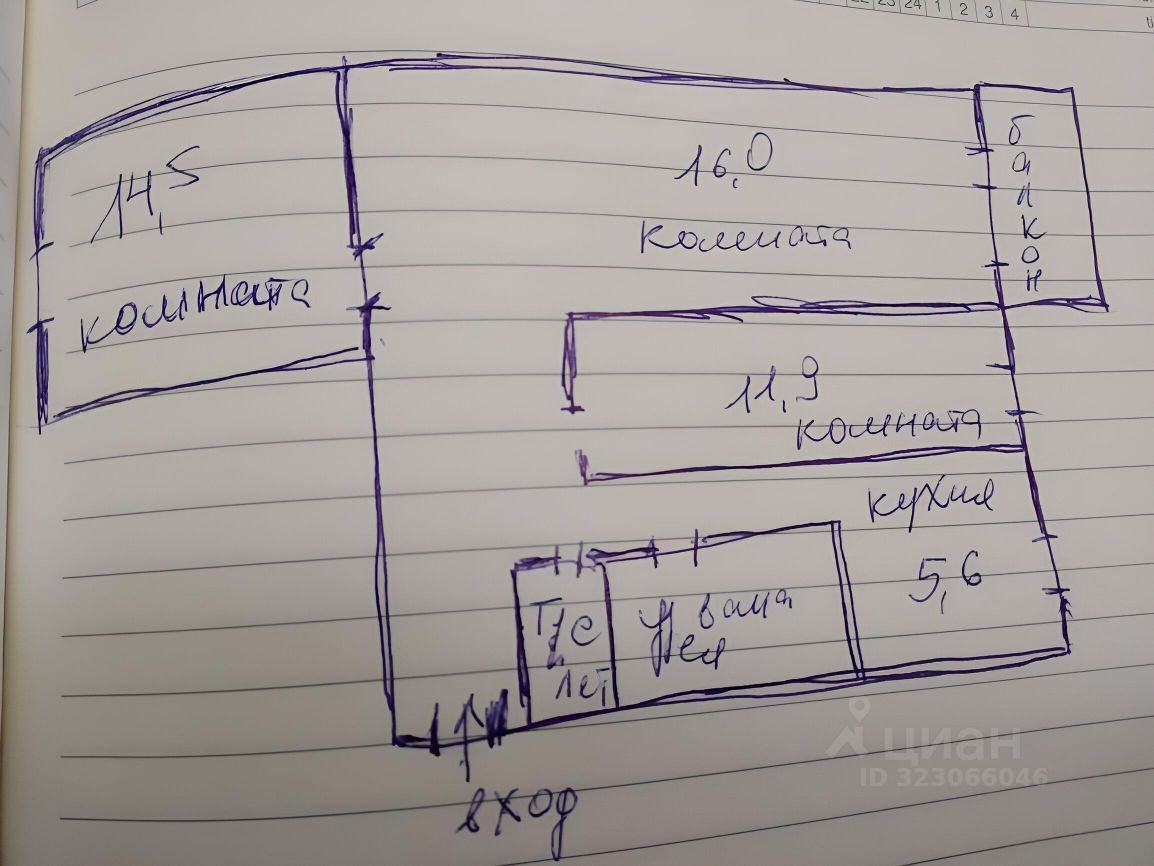 22 23 24 1 2 3 4
14,5
комната
16,0
комната
балкон
11,9
комната
кухня
5,6
Т/с
лет
ванная
вход
циан
ID 323066046